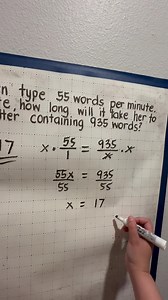 n type 55 words per minute.
te, how long will it take her to
tter containing 935 words?
17
x · 55/1 = 935/x · x
55x/55 = 935/55
x = 17